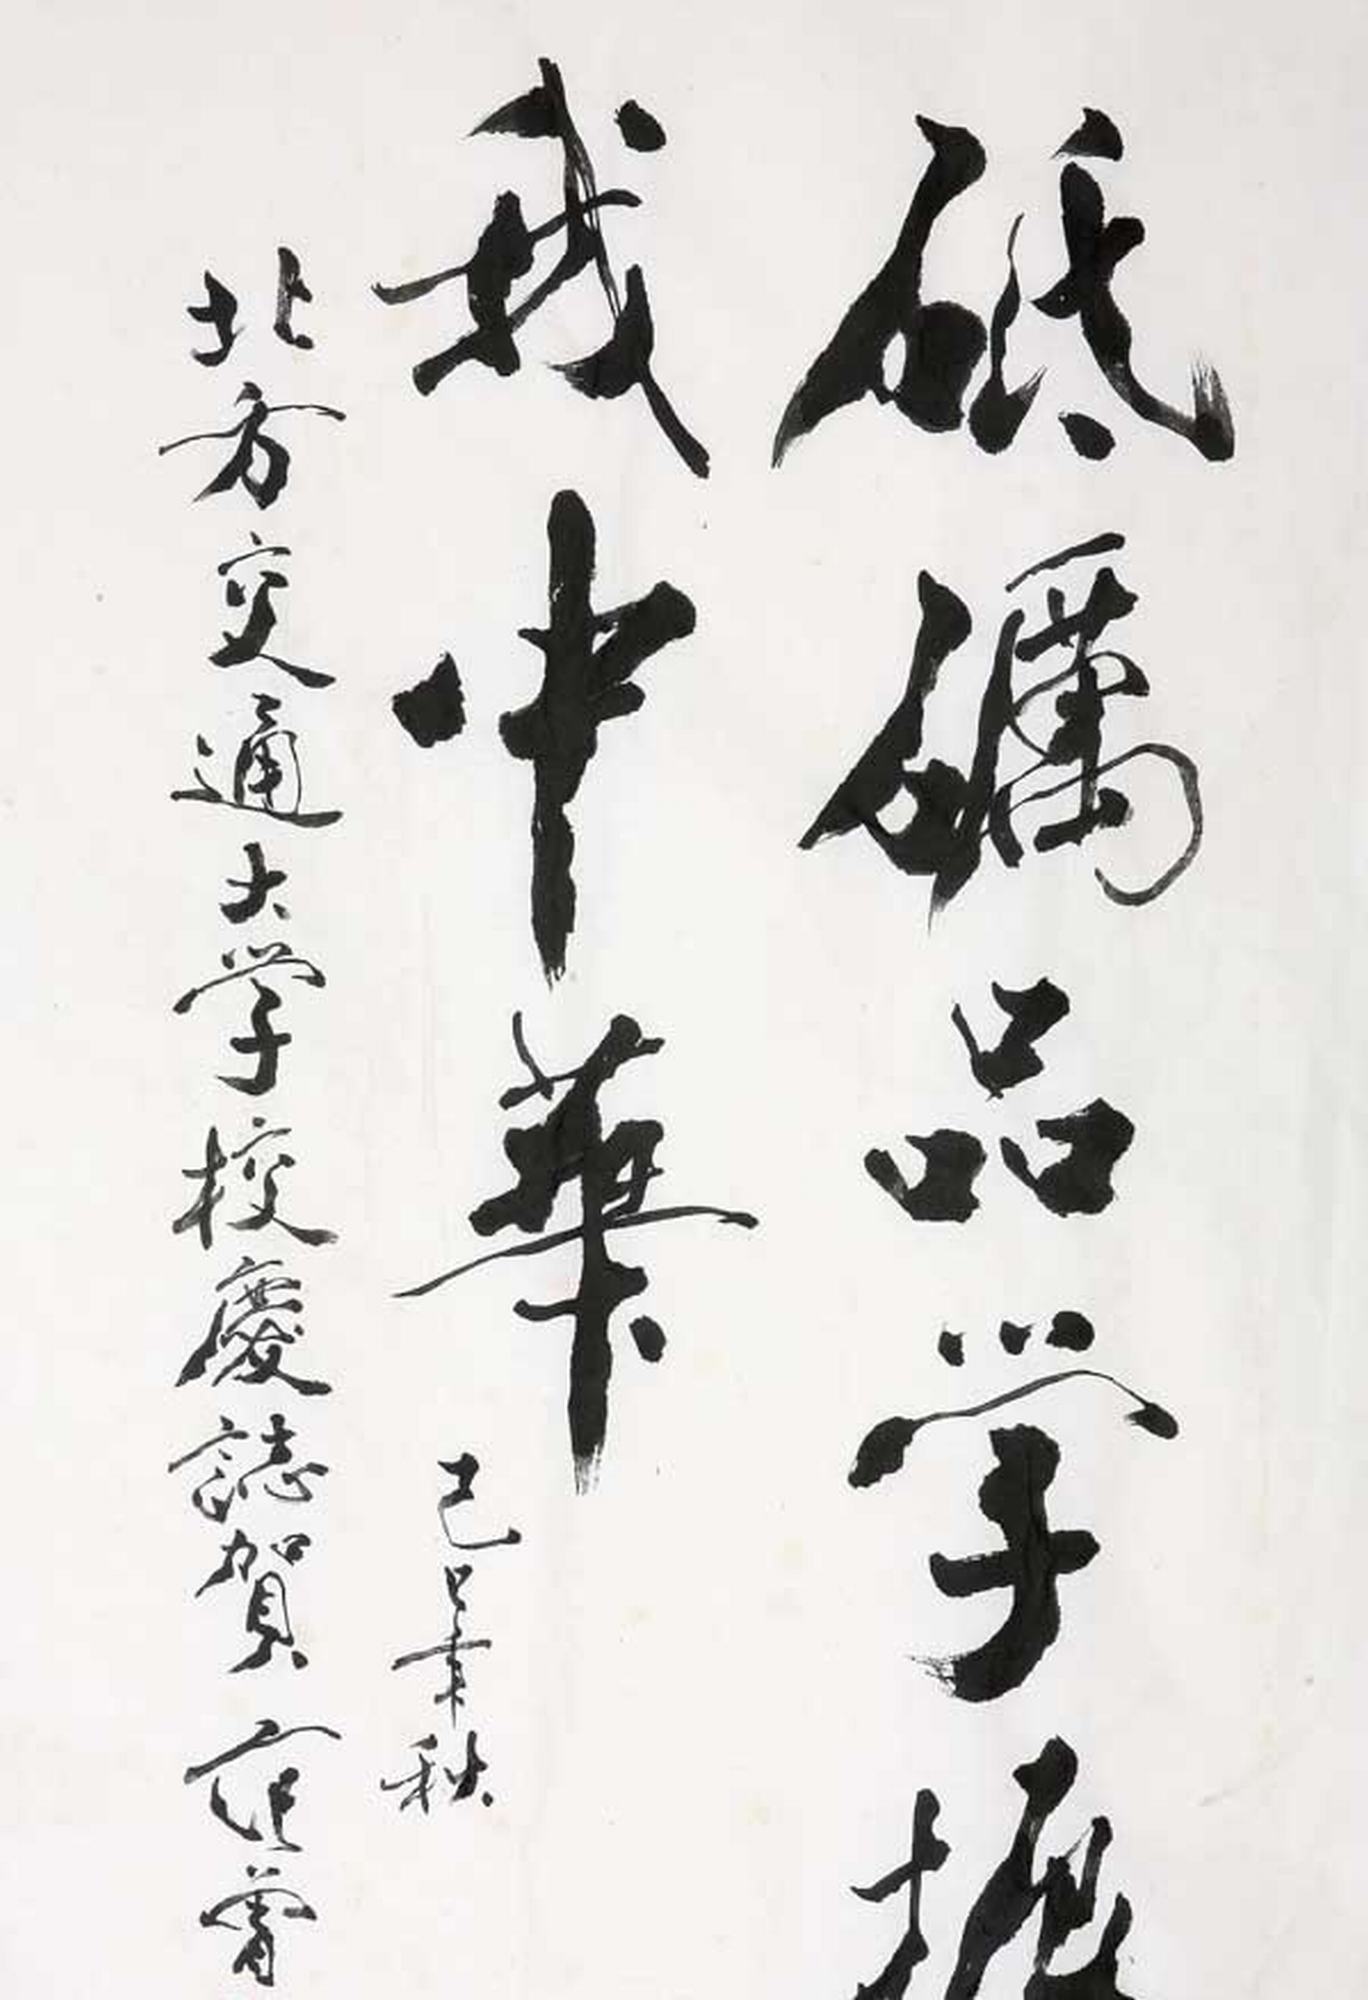 砥礪品学振
我中華
己巳年秋
北方交通大学校慶誌賀 范曾